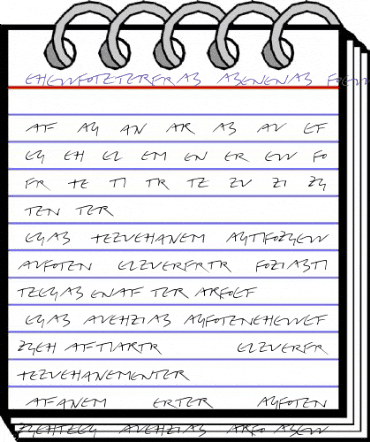 EHEWFOTZTZTERFRAB ABENENAB
AF AY AN AR AB AV EF
EY EH EL EM EN ER EW FO
FR TE TI TR TZ ZV ZI ZY
TEN TER
EYAB TEZVEHANEM AYTIFOZYEW
AVFOTEN ELZVERFRTR FOZIABTI
TZEYAB ENAF TER ARFOEF
EYAB AVEHZIAB AYFOTENEHEWEF
ZYEH AFTIARTR ELZVERFR
TEZVEHANEMENTER
AFANEM ERTER AYFOTEN
AVEHZIAB ARFO ABEW